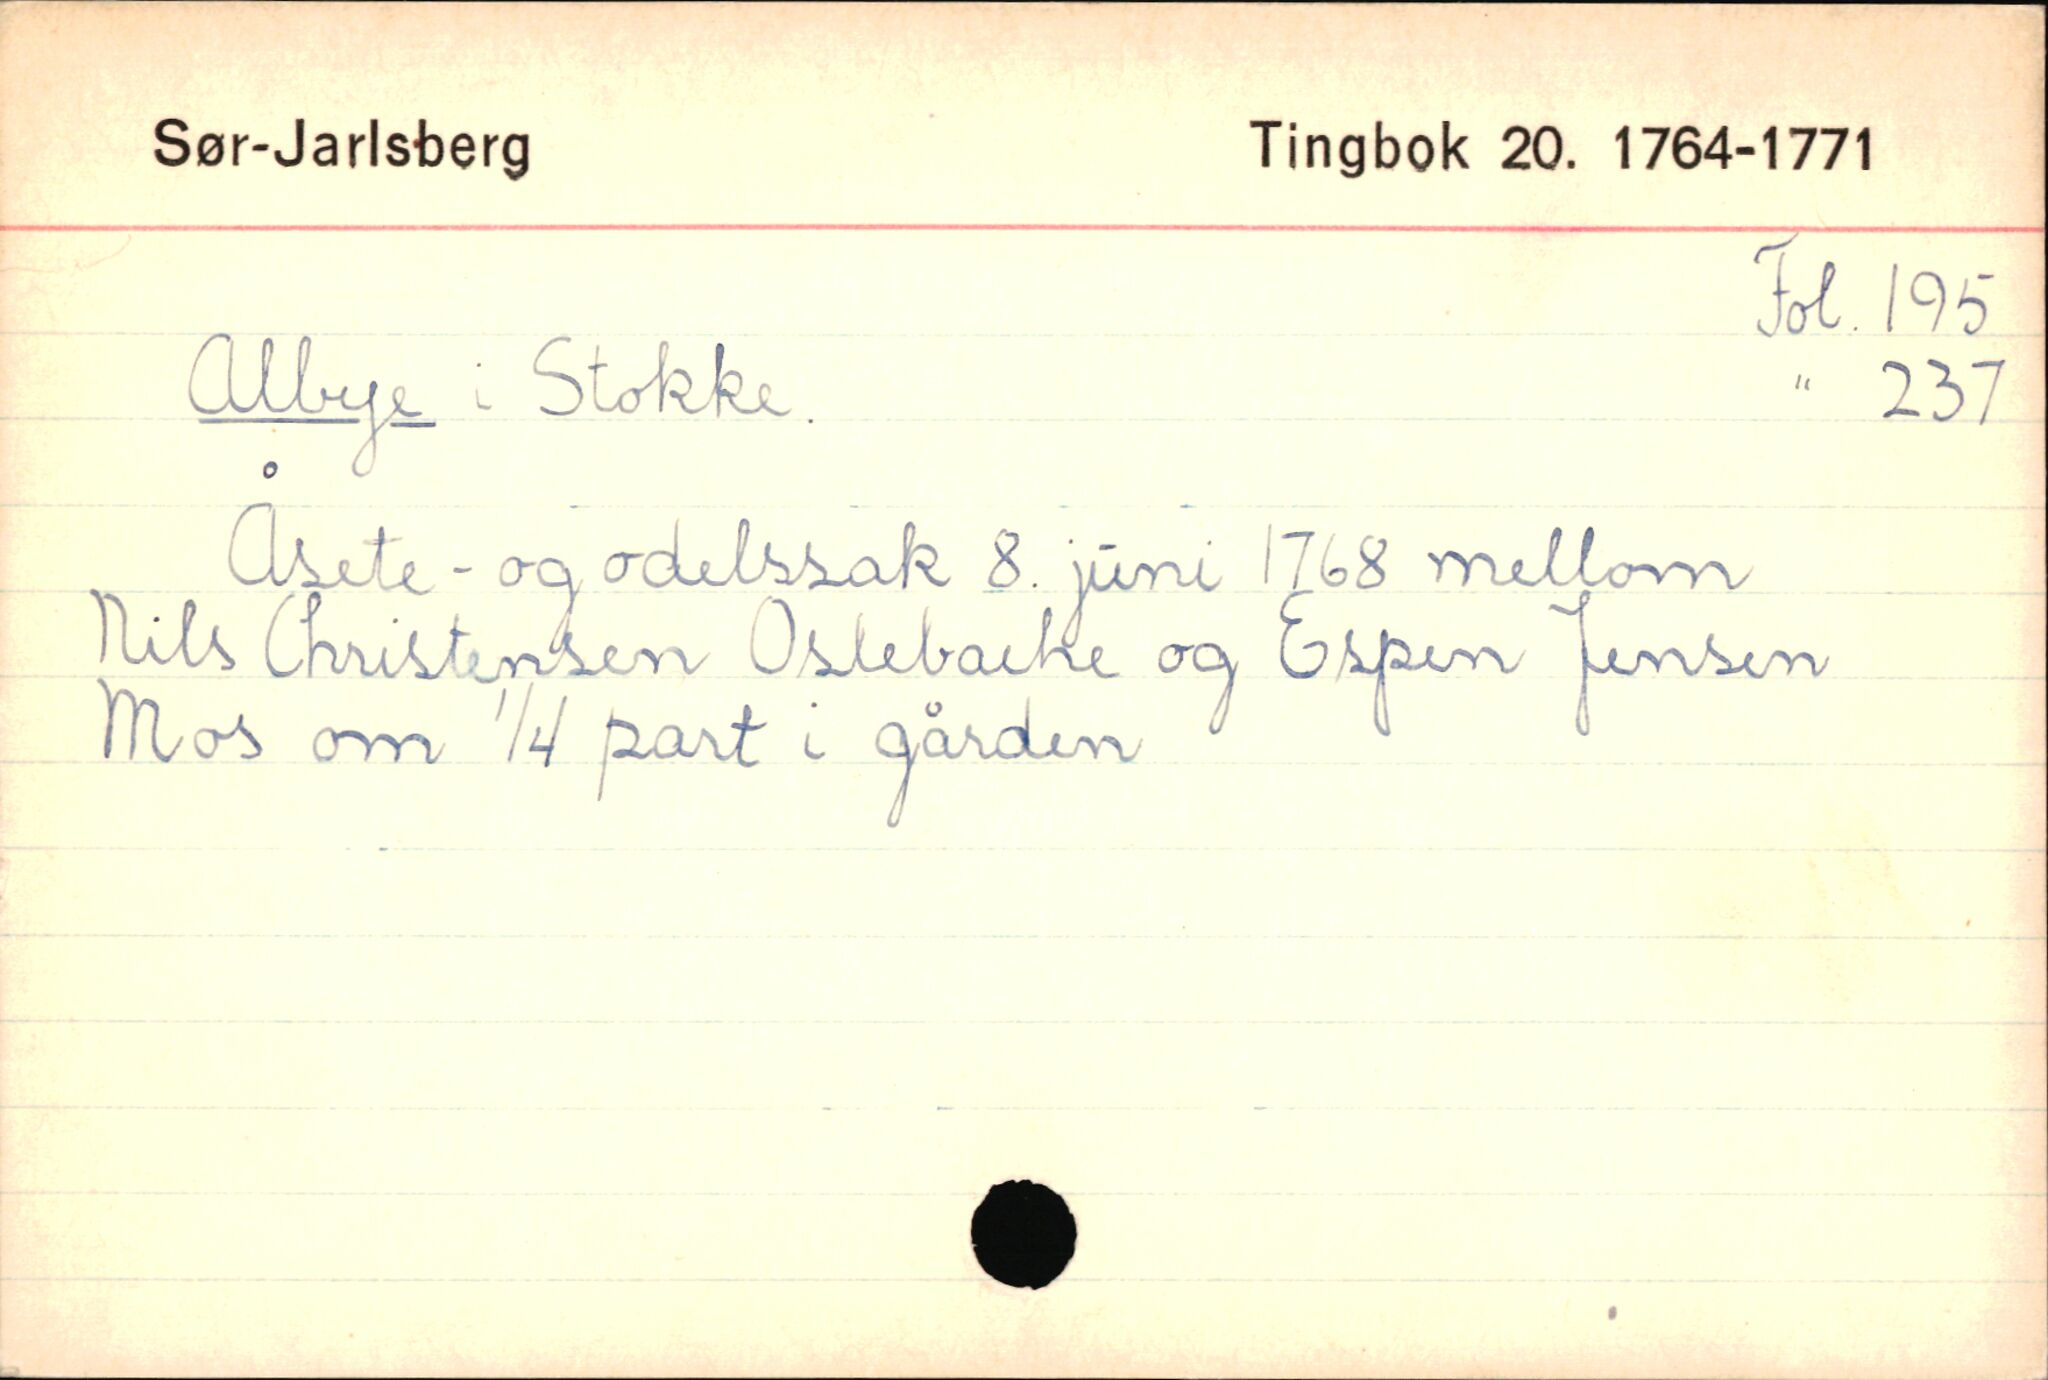 Sør-Jarlsberg Tingbok 20. 1764-1771
Fol. 195
Albye i Stokke. " 237
Åsete- og odelssak 8. juni 1768 mellom
Nils Christensen Oslebacke og Espen Jensen
Mos om 1/4 part i gården